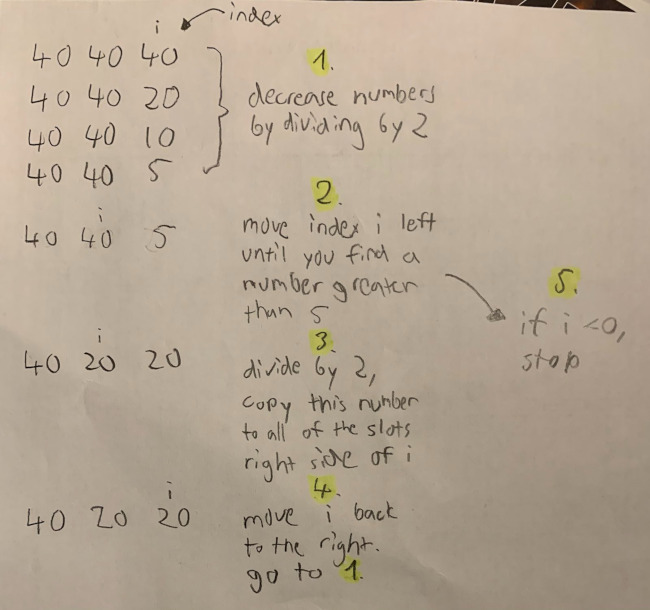 i index
40 40 40
40 40 20
40 40 10
40 40 5
1.
decrease numbers
by dividing by 2
i
40 40 5
2.
move index i left
until you find a
number greater
than 5
5.
if i <0,
stop
i
40 20 20
3.
divide by 2,
copy this number
to all of the slots
right side of i
i
40 20 20
4.
move i back
to the right.
go to 1.